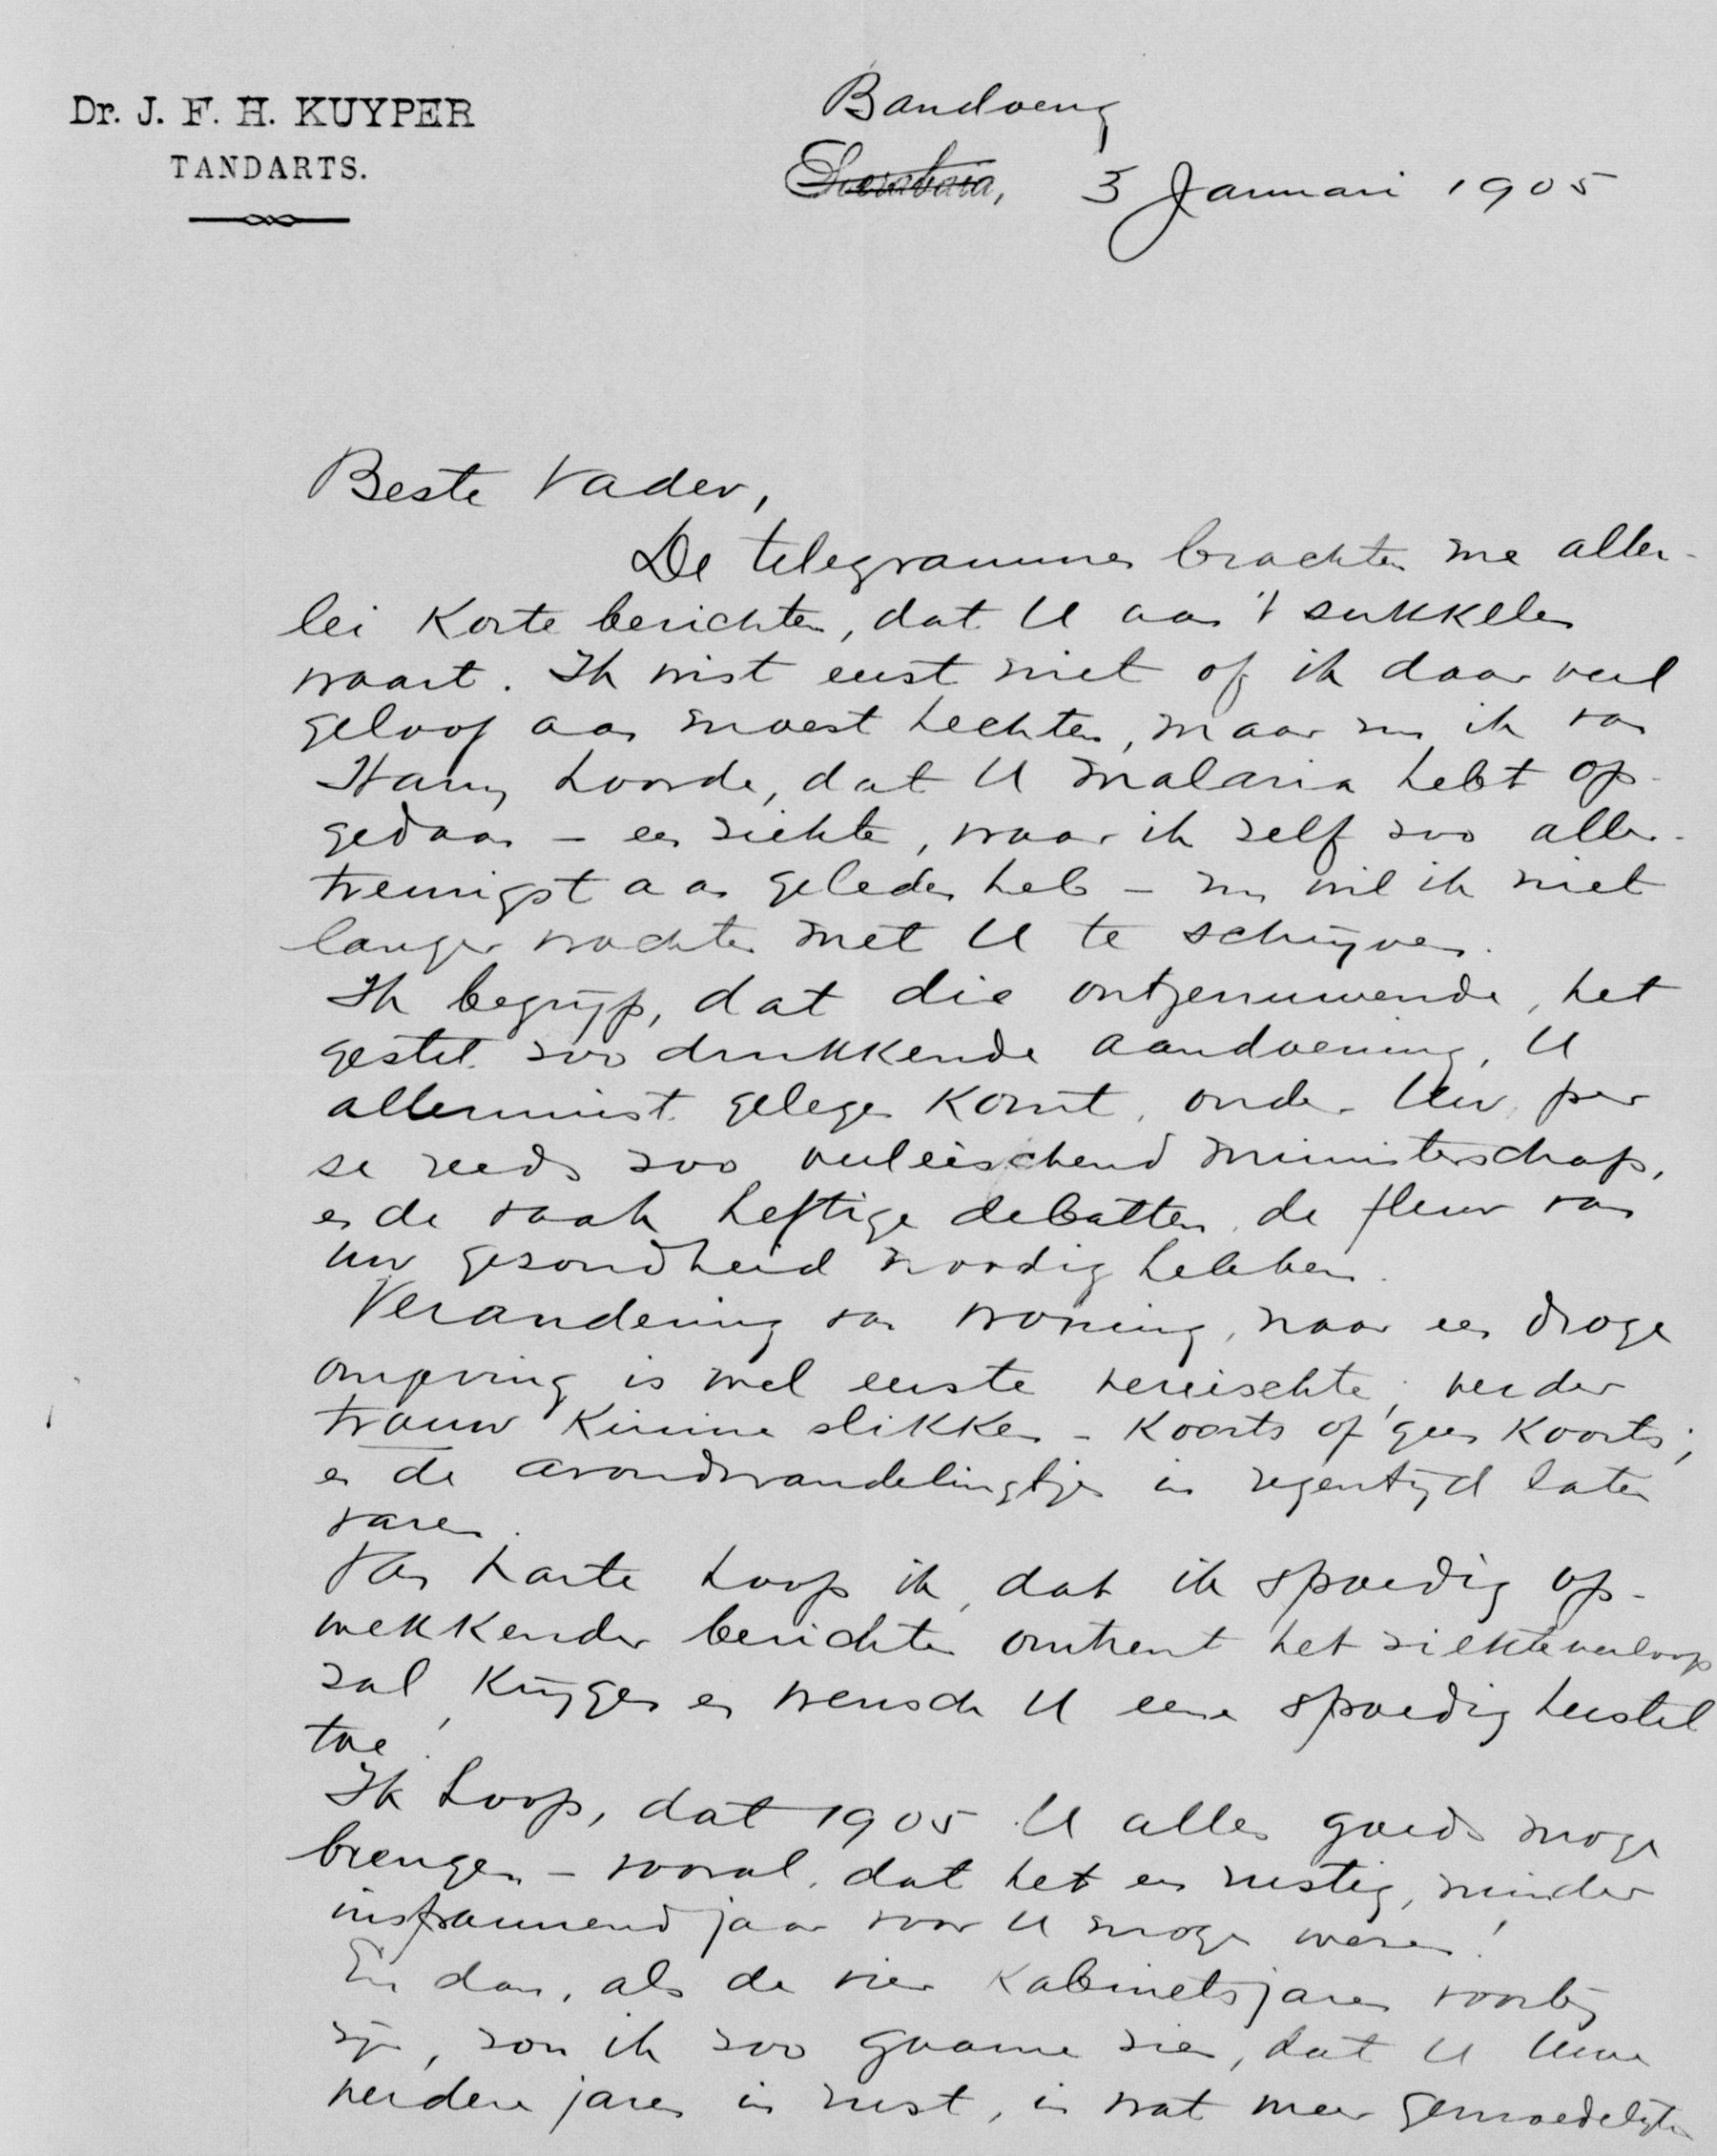 Dr. J. F. H. KUYPER
TANDARTS.
Bandoeng
Soerabaia, 3 Januari 1905
Beste Vader,
De telegrammen brachten me aller-
lei korte berichten, dat U aan 't sukkelen
waart. Ik wist eerst niet of ik daar veel
geloof aan moest hechten, maar nu ik van
Harry hoorde, dat U malaria hebt op-
gedaan – een ziekte, waar ik zelf zoo aller-
treurigst aan geleden heb – nu wil ik niet
langer wachten met U te schrijven.
Ik begrijp, dat die ontzenuwende, het
gestel zoo drukkende aandoening, U
allerminst gelegen komt, onder Uw per
se reeds zoo veeleischend ministerschap,
en de vaak heftige debatten de fleur van
uw gezondheid noodig hebben.
Verandering van woning, naar een droge
omgeving is wel eerste vereischte; verder
trouw kinine slikken – koorts of geen koorts;
en de avondwandelingtjes in regentijd laten
varen.
Van harte hoop ik, dat ik spoedig op-
wekkender berichten omtrent het ziekteverloop
zal krijgen en wensch U eene spoedig herstel
toe!
Ik hoop, dat 1905 U alles goeds moge
brengen – vooral, dat het een rustig, minder
inspannend jaar voor U moge wezen!
En dan, als de vier kabinetsjaren voorbij
zijn, zou ik zoo gaarne zien, dat U Uwe
verdere jaren in rust, in wat meer gemoedelijke